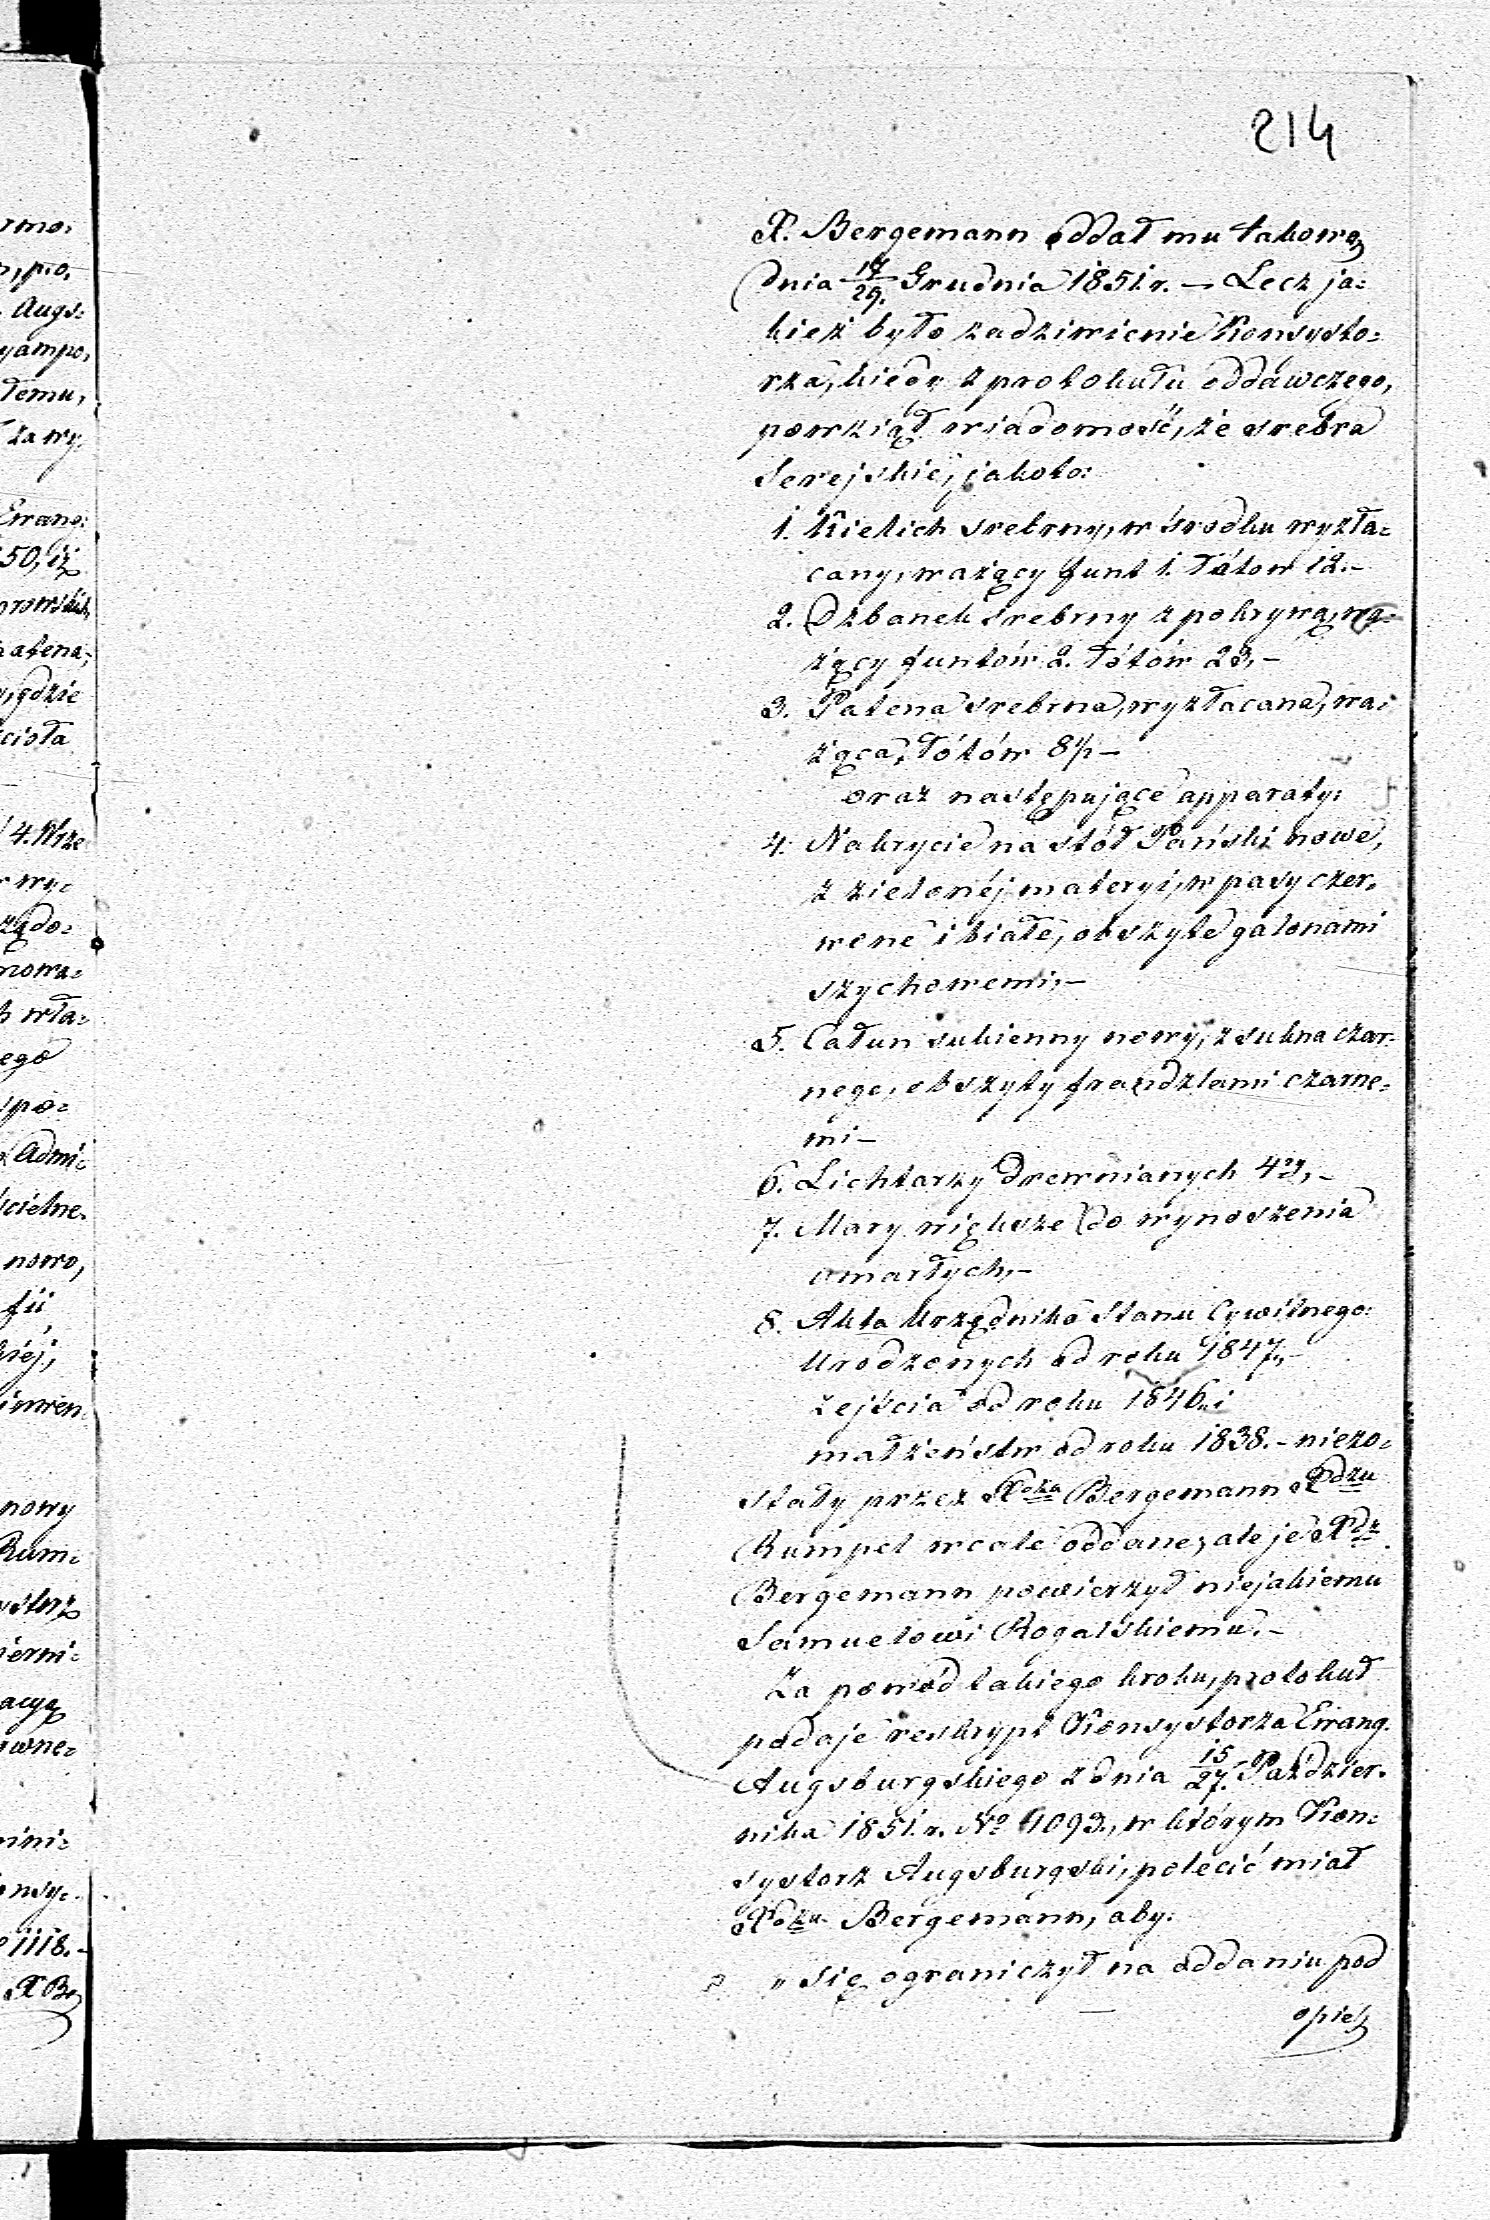 214
X. Bergemann oddał mu takową
dnia 17/29. Grudnia 1851. r. — Lecz ja=
kież było zadziwienie Konsysto=
rza, kiedy z protokułu oddawczego,
powziął wiadomość, że srebra
Serejskie, jakoto:
1. Kielich srebrny, w środku wyzła=
cany, ważący funt 1. łótow 12. —
2. Dzbanek srebrny z pokrywą, wa=
żący funtów 2. łótów 23, —
3. Patena srebrna, wyzłacana, wa=
żąca, łótów 8½ —
oraz następujące apparaty:
4. Nakrycie na stół Pański nowe,
z zielonéj materyi, w pasy czer=
wone i białe, obszyte galonami
szychowemi, —
5. Całun sukienny nowy, z sukna czar=
nego, obszyty frandzlami czarne=
mi —
6. Lichtarzy drewnianych 4ry, —
7. Mary większe do wynoszenia
umarłych, —
8. Akta Urzędnika Stanu Cywilnego:
Urodzonych od roku 1847, —
zejścia od roku 1846. i
małżeństw od roku 1838. — niezo=
stały przez Xdza Bergemann Xdzu
Rumpel wcale oddane, ale je Xdz
Bergemann powierzył niejakiemu
Samuelowi Rogalskiemu. —
Za powód takiego kroku, protokuł
podaje reskrypt Konsystorza Ewang.
Augsburgskiego z dnia 15/27. Paździer=
nika 1851. r. No 1093., w którym Kon=
systorz Augsburgski, polecić miał
Xdzu Bergemann, aby:
„ się ograniczył na oddaniu pod
opie=